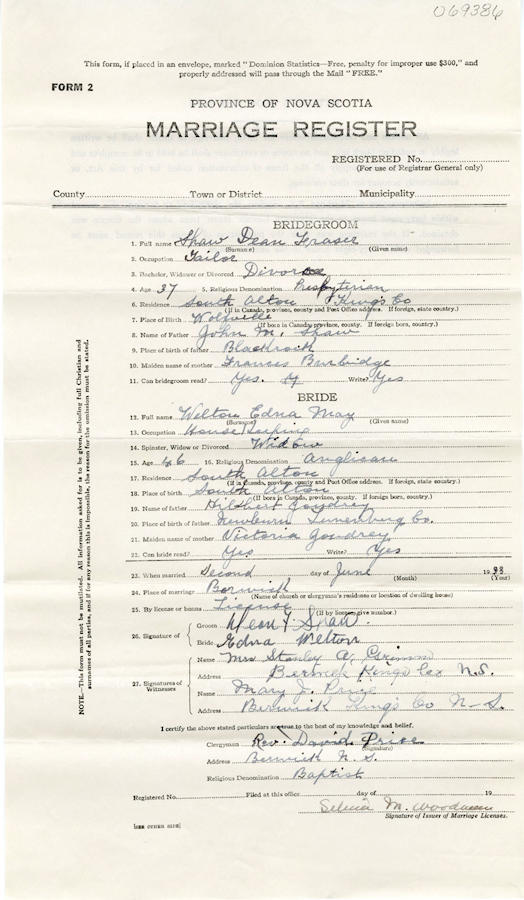 069386
This form, if placed in an envelope, marked "Dominion Statistics—Free, penalty for improper use $300," and
properly addressed will pass through the Mail "FREE."
FORM 2
PROVINCE OF NOVA SCOTIA
MARRIAGE REGISTER
REGISTERED No.
(For use of Registrar General only)
County Town or District Municipality
BRIDEGROOM
1. Full name Shaw Dean Fraser
(Surname) (Given name)
2. Occupation Tailor
3. Bachelor, Widower or Divorced Divorcee
4. Age 37 5. Religious Denomination Presbyterian
6. Residence South Alton Kings Co
(If in Canada, province, county and Post Office address. If foreign, state country.)
7. Place of Birth Wolfville
(If born in Canada, province, county. If foreign born, country.)
8. Name of Father John M. Shaw
9. Place of birth of father
10. Maiden name of mother Frances Burbidge
11. Can bridegroom read? Yes. Write? Yes
BRIDE
12. Full name Welton Edna May
(Surname) (Given name)
13. Occupation House Keeping
14. Spinster, Widow or Divorced Widow
15. Age 46 16. Religious Denomination Anglican
17. Residence South Alton
(If in Canada, province, county and Post Office address. If foreign, state country.)
18. Place of birth South Alton
(If born in Canada, province, county. If foreign born, country.)
19. Name of father
20. Place of birth of father Lunenburg Co.
21. Maiden name of mother Victoria
22. Can bride read? Yes Write? Yes
23. When married Second day of June 1938
(Month) (Year)
24. Place of marriage Berwick
(Name of church or clergyman's residence or location of dwelling house)
25. By license or banns License
(If by license, give number.)
26. Signature of
Groom Dean F Shaw.
Bride Edna Welton
27. Signatures of Witnesses
Name Mrs Stanley A.
Address Berwick Kings Co N.S.
Name Mary J. Price
Address Berwick King's Co N-S.
I certify the above stated particulars are true to the best of my knowledge and belief.
Clergyman Rev. David Price
(Signature)
Address Berwick N. S.
Religious Denomination Baptist
Registered No. Filed at this office day of 19
Selena M. Woodman
Signature of Issuer of Marriage Licenses.
[SEE OTHER SIDE]
NOTE.—This form must not be mutilated. All information asked for is to be given, including full Christian and
surnames of all parties, and if for any reason this is impossible, the reason for the omission must be stated.